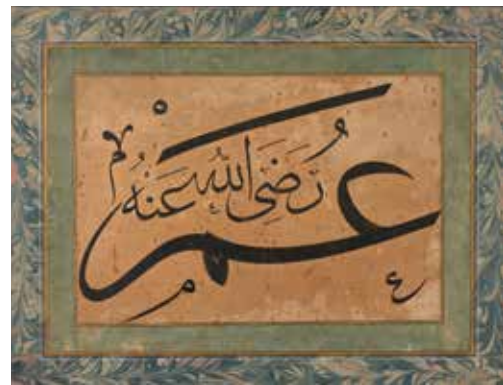 عمر
رَضِىَ الله عَنْهُ